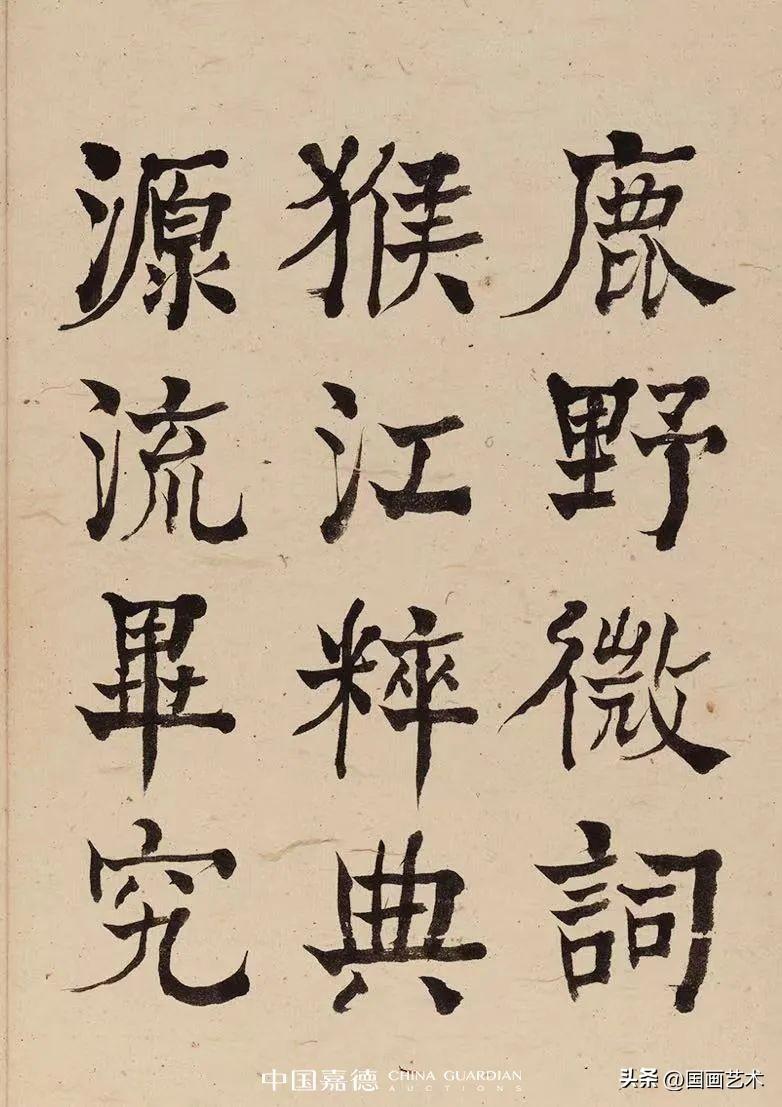 鹿野微詞
猴江粹典
源流畢究
中国嘉德 CHINA GUARDIAN AUCTIONS
头条 @国画艺术